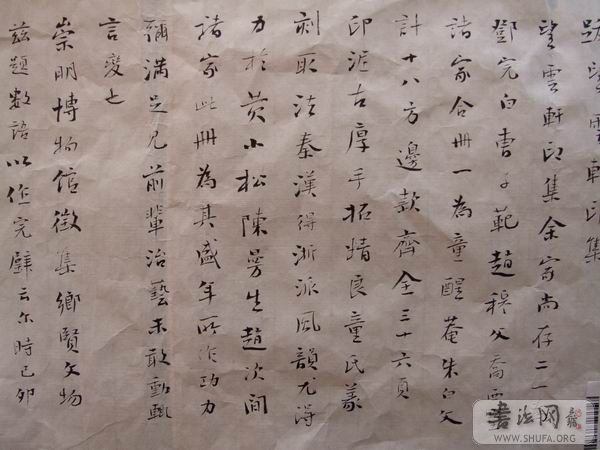 跋望雲軒印集
望雲軒印集余寄尚存二一
鄧完白曹子範趙穆父喬
諸家合冊一為童醒菴朱白父
計十八方邊款齊全三十六頁
印泥古厚手拓精良童氏篆
刻取法秦漢得浙派風韻尤得
力於黃小松陳曼生趙次閒
諸家此冊為其盛年所作功力
彌滿足見前輩治藝未敢動輒
言變也
崇明博物館徵集鄉賢文物
茲題數語以作完璧云尔時己卯
書法网
WWW.SHUFA.ORG